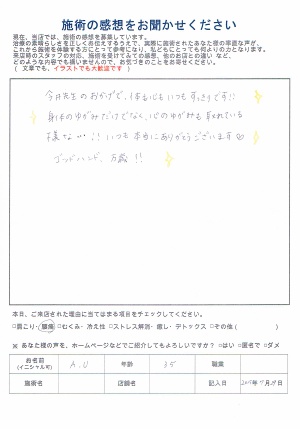 施術の感想をお聞かせください
現在、当店では、施術の感想を募集しています。
治療の素晴らしさを正しくお伝えするうえで、実際に施術されたあなた様の率直な声が、
これから施術を体験する方にとって参考になり、私どもにとっても何よりの宝となります。
来店時のスタッフの対応、施術を受けてみての感想、他のお店との違い など、
どのような内容でも構いませんので、お気づきのことをお寄せください。
( 文章でも、イラストでも大歓迎です )
今井先生のおかげで、体も心もいつもすっきりです!!
身体のゆがみだけでなく、心のゆがみも取れている
様な…!! いつも本当にありがとうございます♡
ゴッドハンド、万歳!!
本日、ご来店された理由に当てはまる項目をチェックしてください。
□肩こり・腰痛 □むくみ・冷え性 □ストレス解消・癒し・デトックス □その他( )
※ あなた様の声を、ホームページなどでご紹介してもよろしいですか? □はい □匿名で □ダメ
お名前 (イニシャル可) A.U 年齢 35 職業
施術名 店舗名 記入日